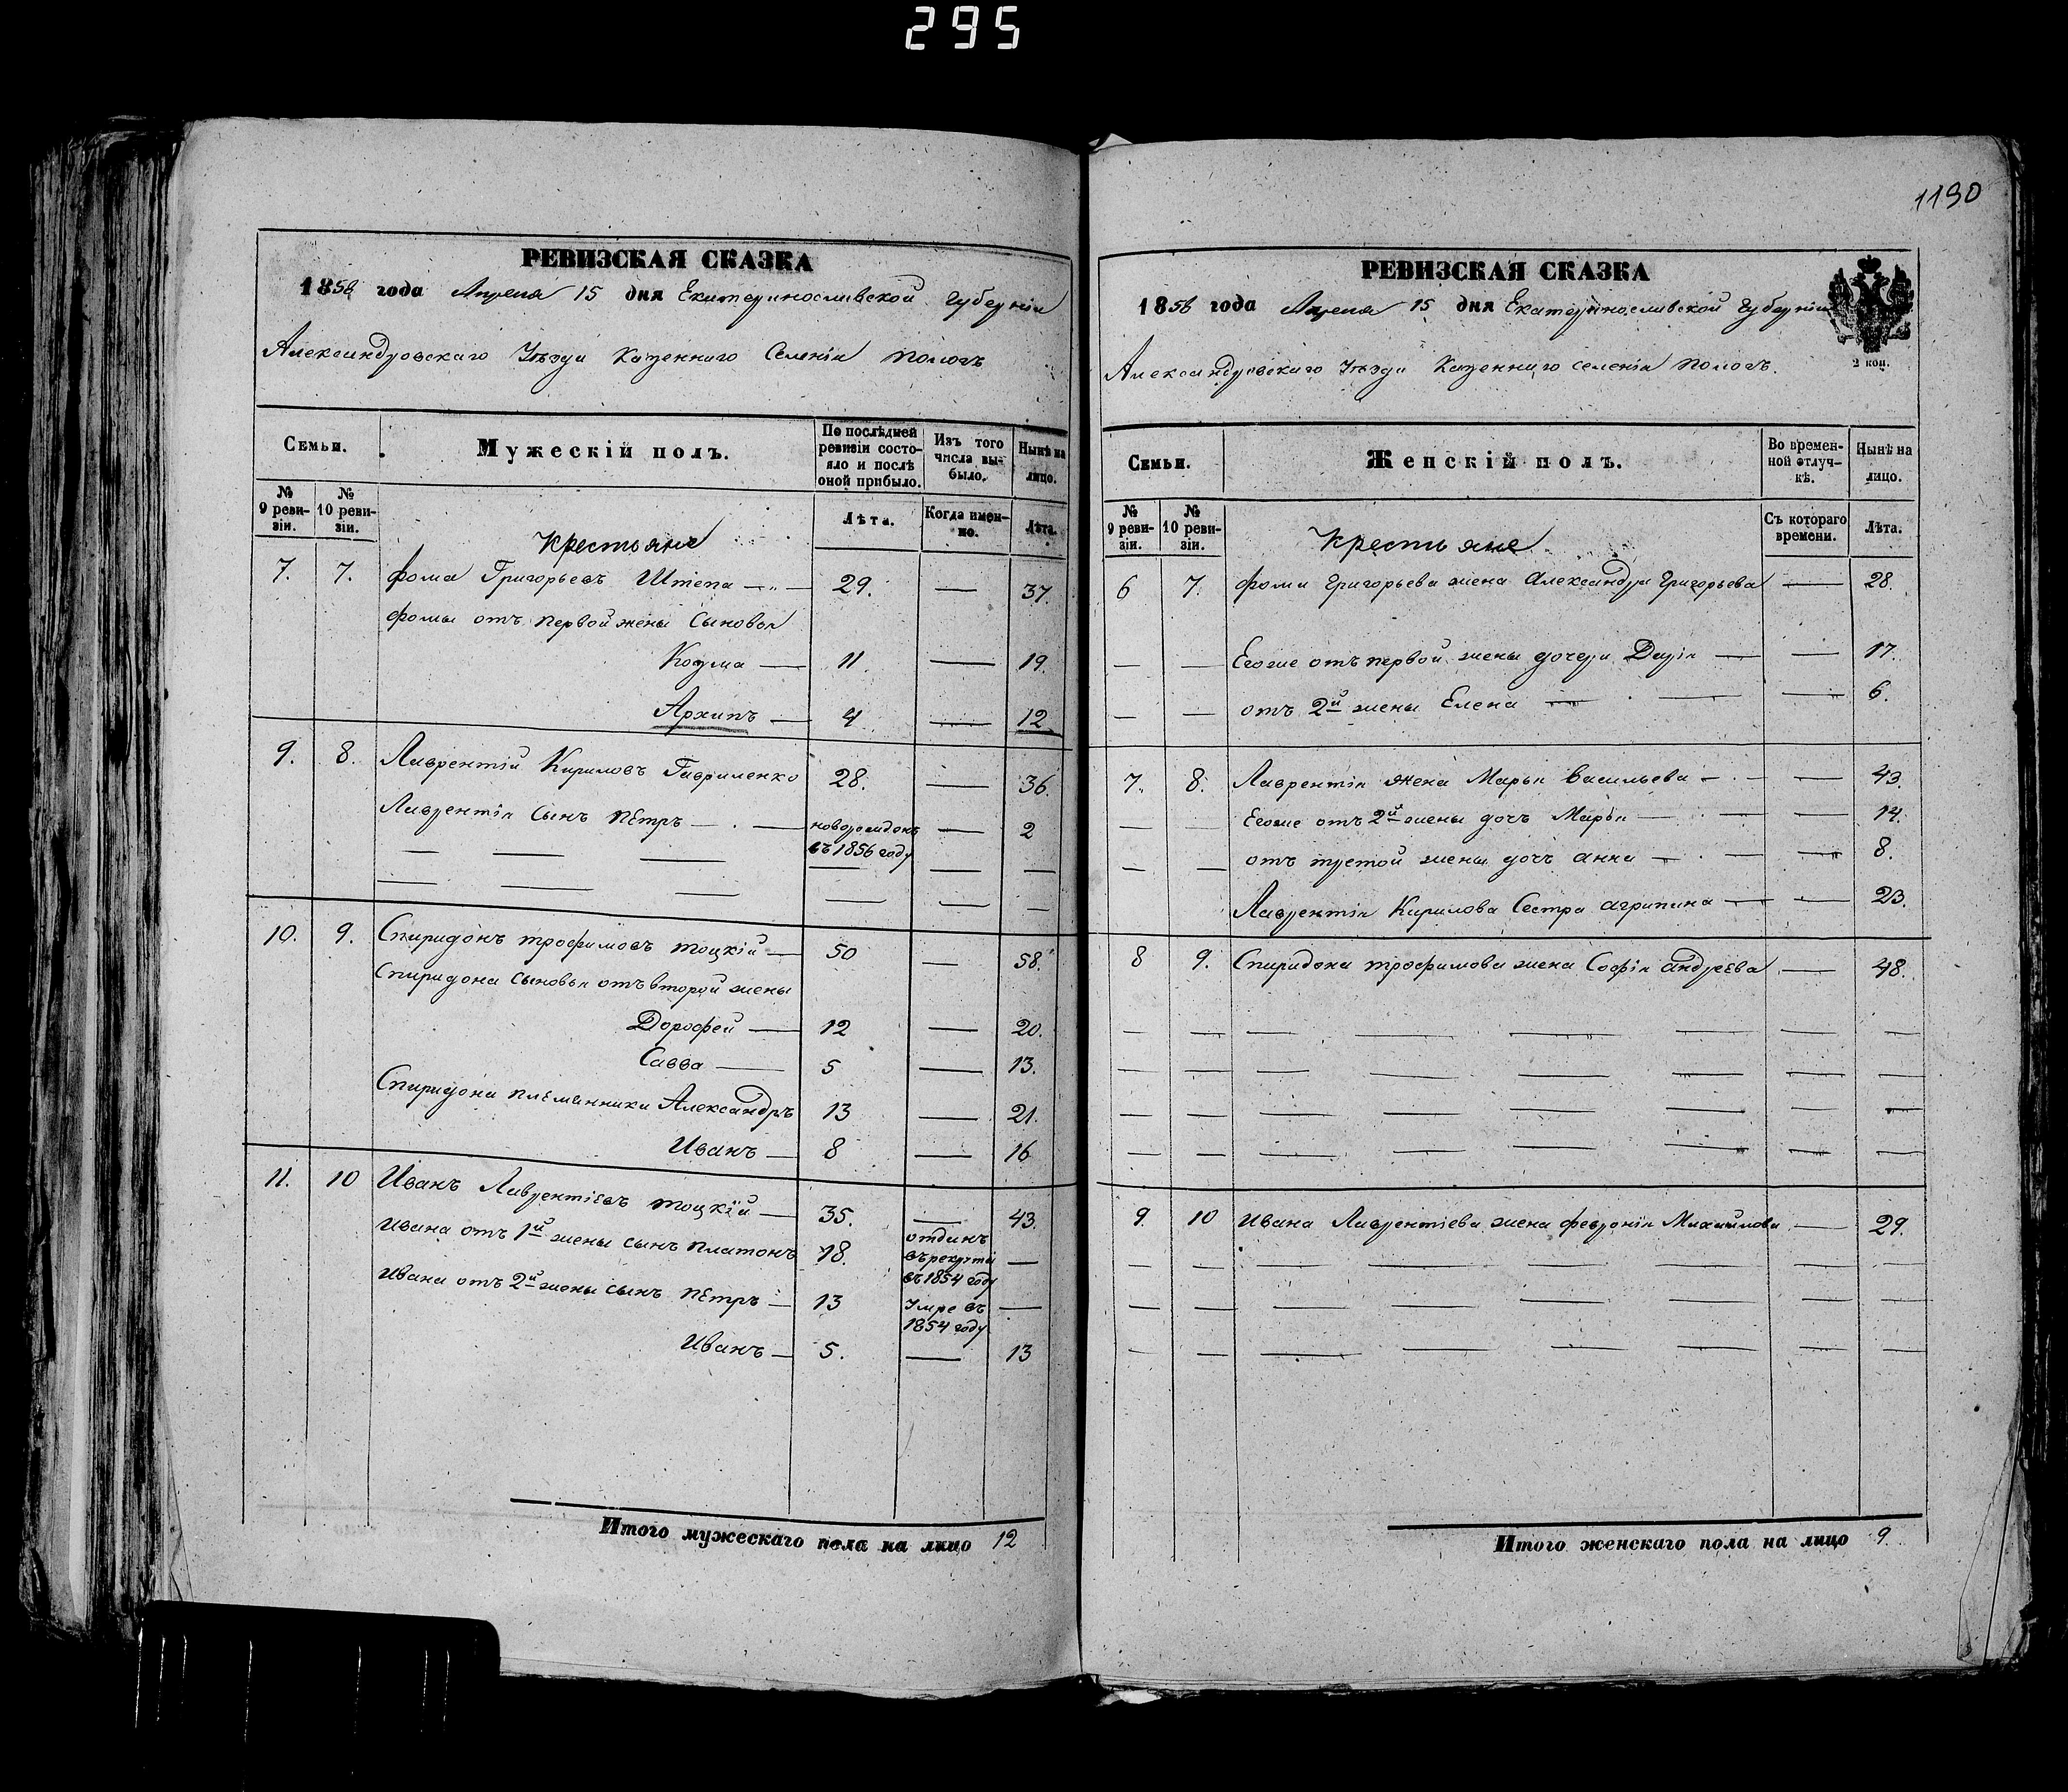 295
РЕВИЗСКАЯ СКАЗКА
1858 года Апреля 15 дня Екатеринославской Губерніи
Александровскаго Уѣзда Казеннаго Селенія Пологъ
Семьи.
Мужескій полъ.
По послѣдней ревизіи состояло и послѣ оной прибыло.
Изъ того числа выбыло.
Нынѣ на лицо.
№ 9 ревизіи.
№ 10 ревизіи.
Лѣта.
Когда именно.
Лѣта.
Крестьяне
7. 7. Фома Григорьевъ Штепа 29. — 37.
Фомы отъ первой жены Сыновья
Козма — 11. — 19.
Архипъ — 4 — 12
9. 8. Лаврентій Кириловъ Гавриленко 28. — 36.
Лаврентія Сынъ Пётръ — новорожденъ въ 1856 году — 2
10. 9. Спиридонъ трофимовъ тоцкій — 50 — 58.
Спиридона сыновья отъ второй жены
Дорофей — 12 — 20.
Савва — 5 — 13.
Спиридона племянники Александръ 13 — 21.
Иванъ — 8 — 16
11. 10 Иванъ Лаврентіевъ тоцкій — 35. — 43.
Ивана отъ 1й жены сынъ Платонъ 18. отданъ въ рекруты въ 1854 году —
Ивана отъ 2й жены сынъ Пётръ — 13 Умре въ 1854 году —
Иванъ — 5. — 13
Итого мужескаго пола на лицо 12
1190
РЕВИЗСКАЯ СКАЗКА
1858 года Апреля 15 дня Екатеринославской Губерніи
Александровскаго Уѣзда Казеннаго селенія Пологъ.
2 коп.
Семьи.
Женскій полъ.
Во временной отлучкѣ.
Нынѣ на лицо.
№ 9 ревизіи.
№ 10 ревизіи.
Съ котораго времени.
Лѣта.
Крестьяне
6 7. Фомы Григорьева жена Александра Григорьева — 28.
Егоже отъ первой жены дочери Дарія — 17.
отъ 2й жены Елена — 6.
7. 8. Лаврентія жена Марья Васильева — 43.
Егоже отъ 2й жены дочь Марья — 14.
отъ третой жены дочь анна — 8.
Лаврентія Кирилова Сестра агрипина — 23.
8 9. Спиридона трофимова жена Софія андреева — 48.
9. 10 Ивана Лаврентіева жена февронія Михайлова — 29.
Итого женскаго пола на лицо 9.